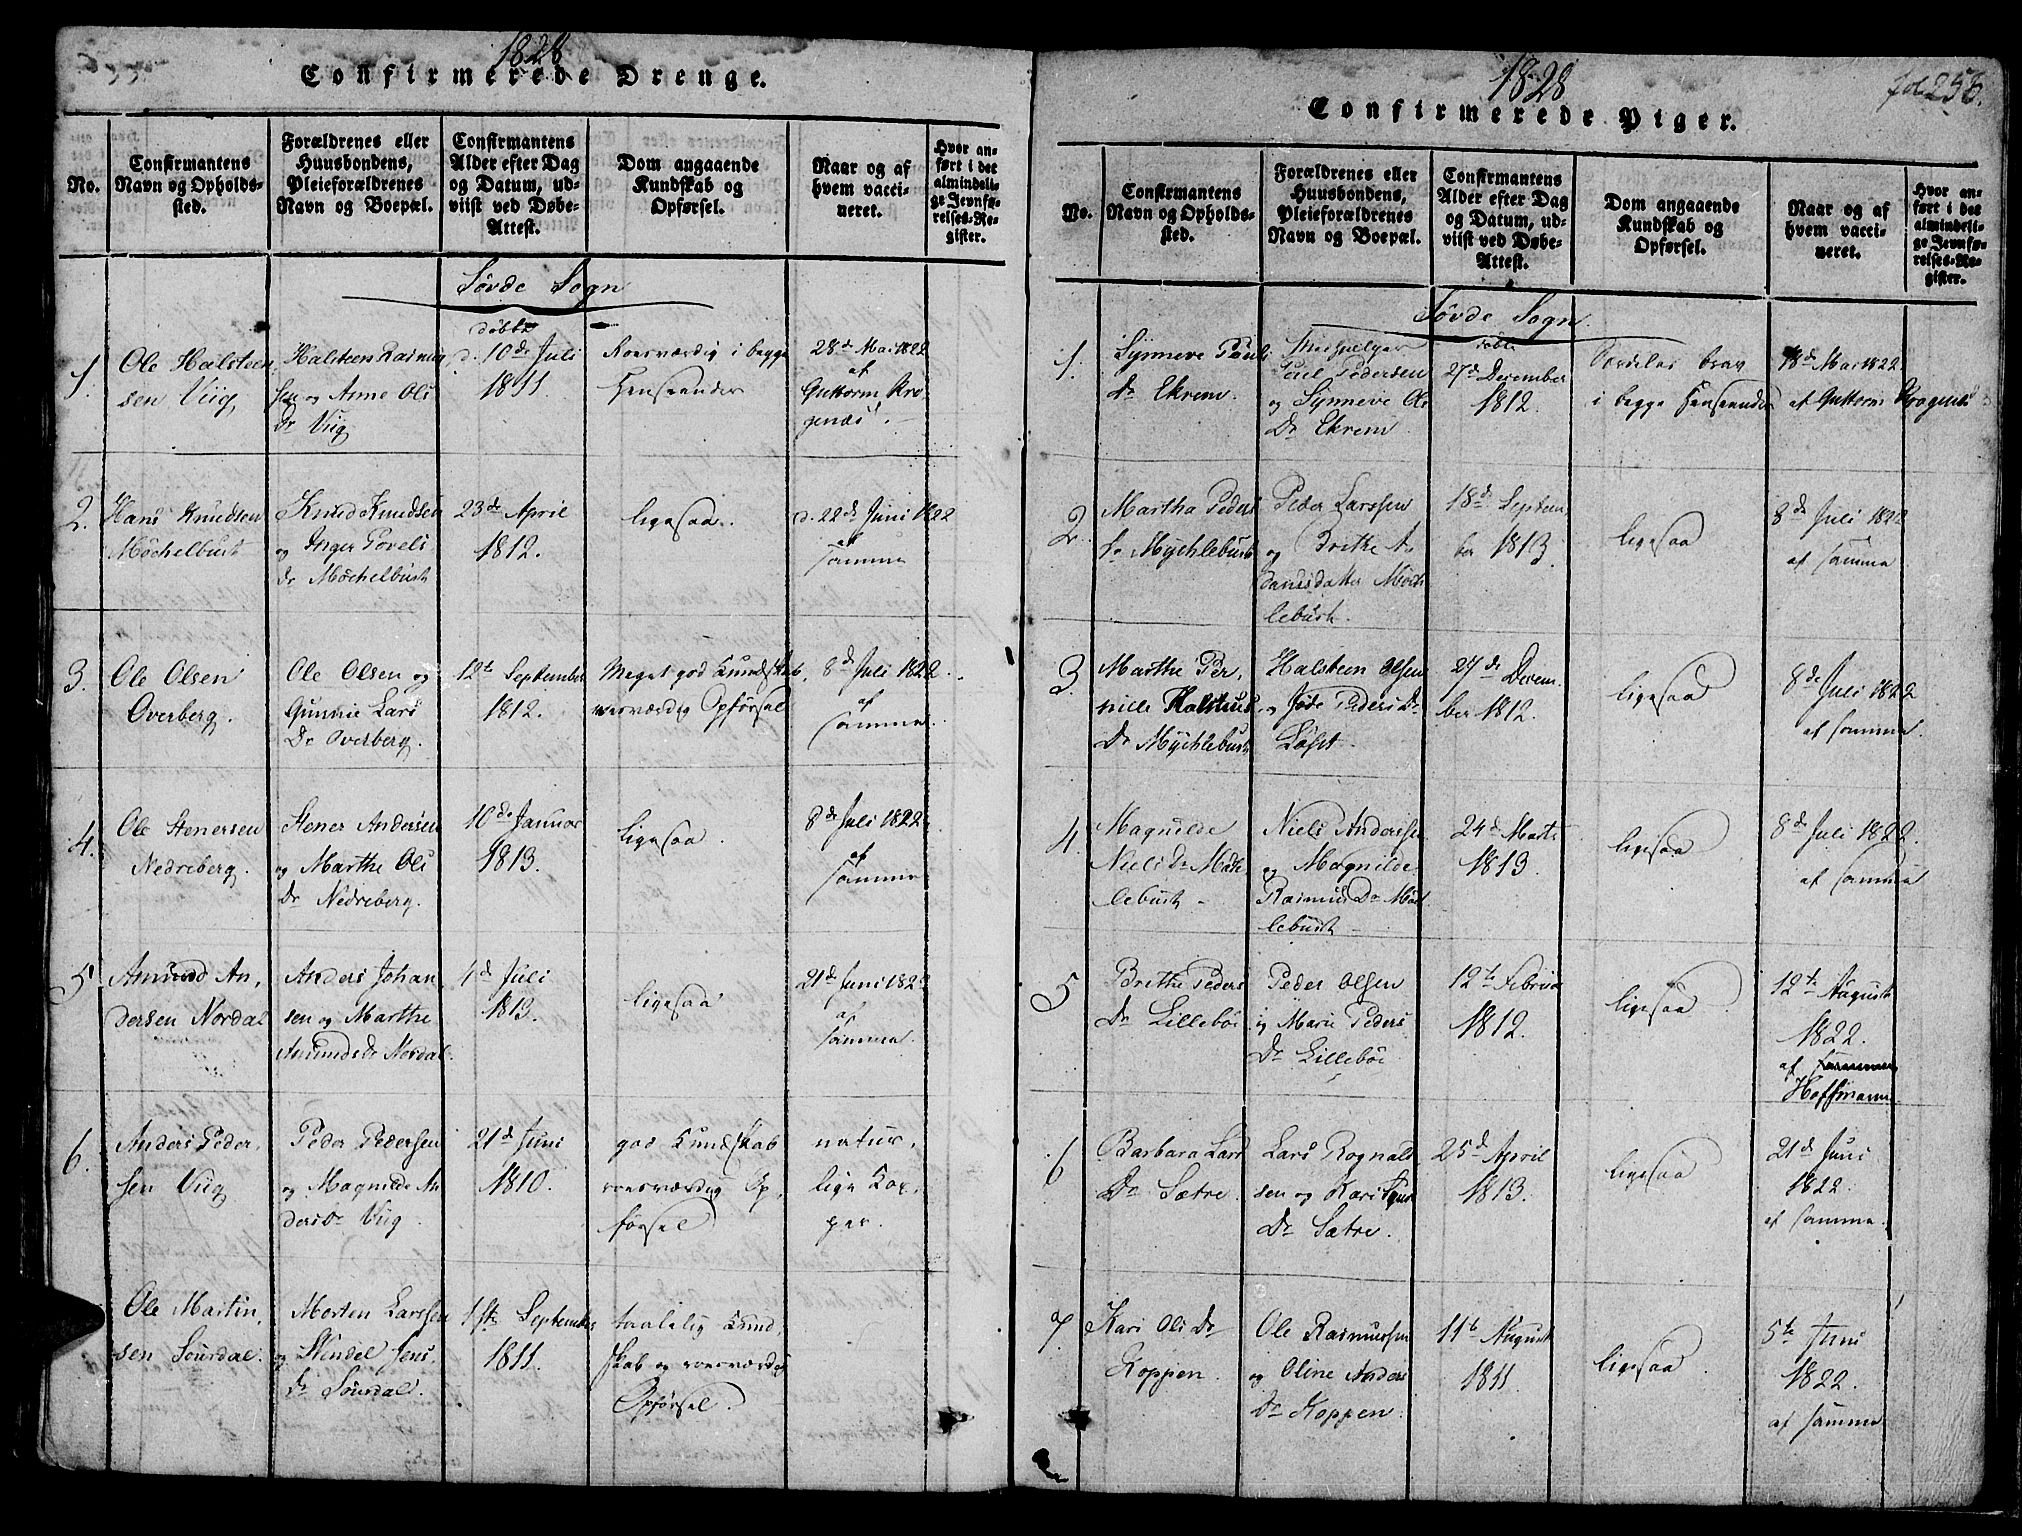 1828
Confirmerede Drenge.
No.
Confirmantens
Navn og Opholds-
sted.
Forældrenes eller
Huusbondens,
Pleieforældrenes
Navn og Boepæl.
Confirmantens
Alder efter Dag
og Datum, ud-
viist ved Døbe-
Attest.
Dom angaaende
Kundskab og
Opførsel.
Naar og af
hvem vacci-
neret.
Hvor an-
ført i det
almindeli-
ge Jevnfø-
relses-Re-
gister.
Søvde Sogn
1.
Ole Halsteen
sen Viig
Halsteen Rasmus
sen og Anne Ols
Dr Viig
døbt
d. 10de Juli
1811.
Roesværdig i begge
Henseender
28de Mai 1822
af
Guttorm Kro
genæs.
2.
Hans Knudsen
Möchelbust
Knud Knudsen
og Inger Povels
Dr Möchelbust
23de April
1812.
ligesaa.
d. 22de Juni 1822
af
samme
3.
Ole Olsen
Overberg.
Ole Olsen og
Gunnie Lars
Dr Overberg.
12te September
1812.
Meget god Kundskab,
roesværdig Opførsel
8de Juli 1822.
af
samme.
4.
Ole Stenersen
Nedreberg.
Stener Andersen
og Marthe Ols
Dr Nedreberg.
10de Januar
1813.
ligesaa.
8de Juli 1822
af
samme
5
Amund An,
dersen Nordal
Anders Johan
sen og Marthe
Amunds Dr Nordal.
4de Juli
1813.
ligesaa
21de Juni 1822
af
samme.
6.
Anders Peder,
sen Viig
Peder Pedersen
og Magnilde An
ders Dr Viig.
21de Juni
1810.
god Kundskab
roesværdig Op,
førsel
natur,
lige Kop,
per.
Ole Martin,
sen Sourdal.
Morten Larssen
og Jens,
Dr Sourdal.
1ste September
1811.
taalelig Kund,
skab og roesværdig
Opførsel.
1828
fol 258.
Confirmerede Piger.
No.
Confirmantens
Navn og Opholds-
sted.
Forældrenes eller
Huusbondens,
Pleieforældrenes
Navn og Boepæl.
Confirmantens
Alder efter Dag
og Datum, ud-
viist ved Døbe-
Attest.
Dom angaaende
Kundskab og
Opførsel.
Naar og af
hvem vacci-
neret.
Hvor an-
ført i det
almindeli-
ge Jevnfø-
relses-Re-
gister.
Søvde Sogn.
1.
Synneve Pauls
Dr Ekrem.
Medhjelper
Poul Pedersen
og Synneve Ols
Dr Ekrem
døbt
27de December
1812.
Særdeles brav
i begge Henseender
18de Mai 1822.
af Guttorm Krogenæs
2.
Martha Peders
Dr Mychlebust
Peder Larssen
og Brithe A,
damsdatter Möch
lebust.
18de Septem,
ber 1813
ligesaa
8de Juli 1822
af samme
3.
Marthe Per,
nille Halsteens
Dr Mychlebust
Halsteen Olsen
og Peders Dr
Löset.
27de Decem.
ber 1812.
ligesaa
8de Juli 1822
af samme.
4
Magnilde
Niels Dr Möch
lebust -
Niels Andersen
og Magnilde
Rasmus Dr Möch
lebust -
24de Marts
1813
ligesaa
8de Juli 1822.
af samme
5
Brithe Peders
Dr Lilleböe
Peder Olsen
og Marie Peders
Dr Lilleböe
12te Februar
1812.
ligesaa
12te August
1822.
af samme
Hoffmann
6
Barbara Lars
Dr Sætre.
Lars Rognald
sen og Kari
Dr Sætre.
25de April
1813.
ligesaa
21de Juni
1822.
af samme.
7.
Kari Ols Dr
Koppen.
Ole Rasmussen
og Oline Anders
Dr Koppen.
11te August
1811.
ligesaa.
5te Juni
1822.
af samme